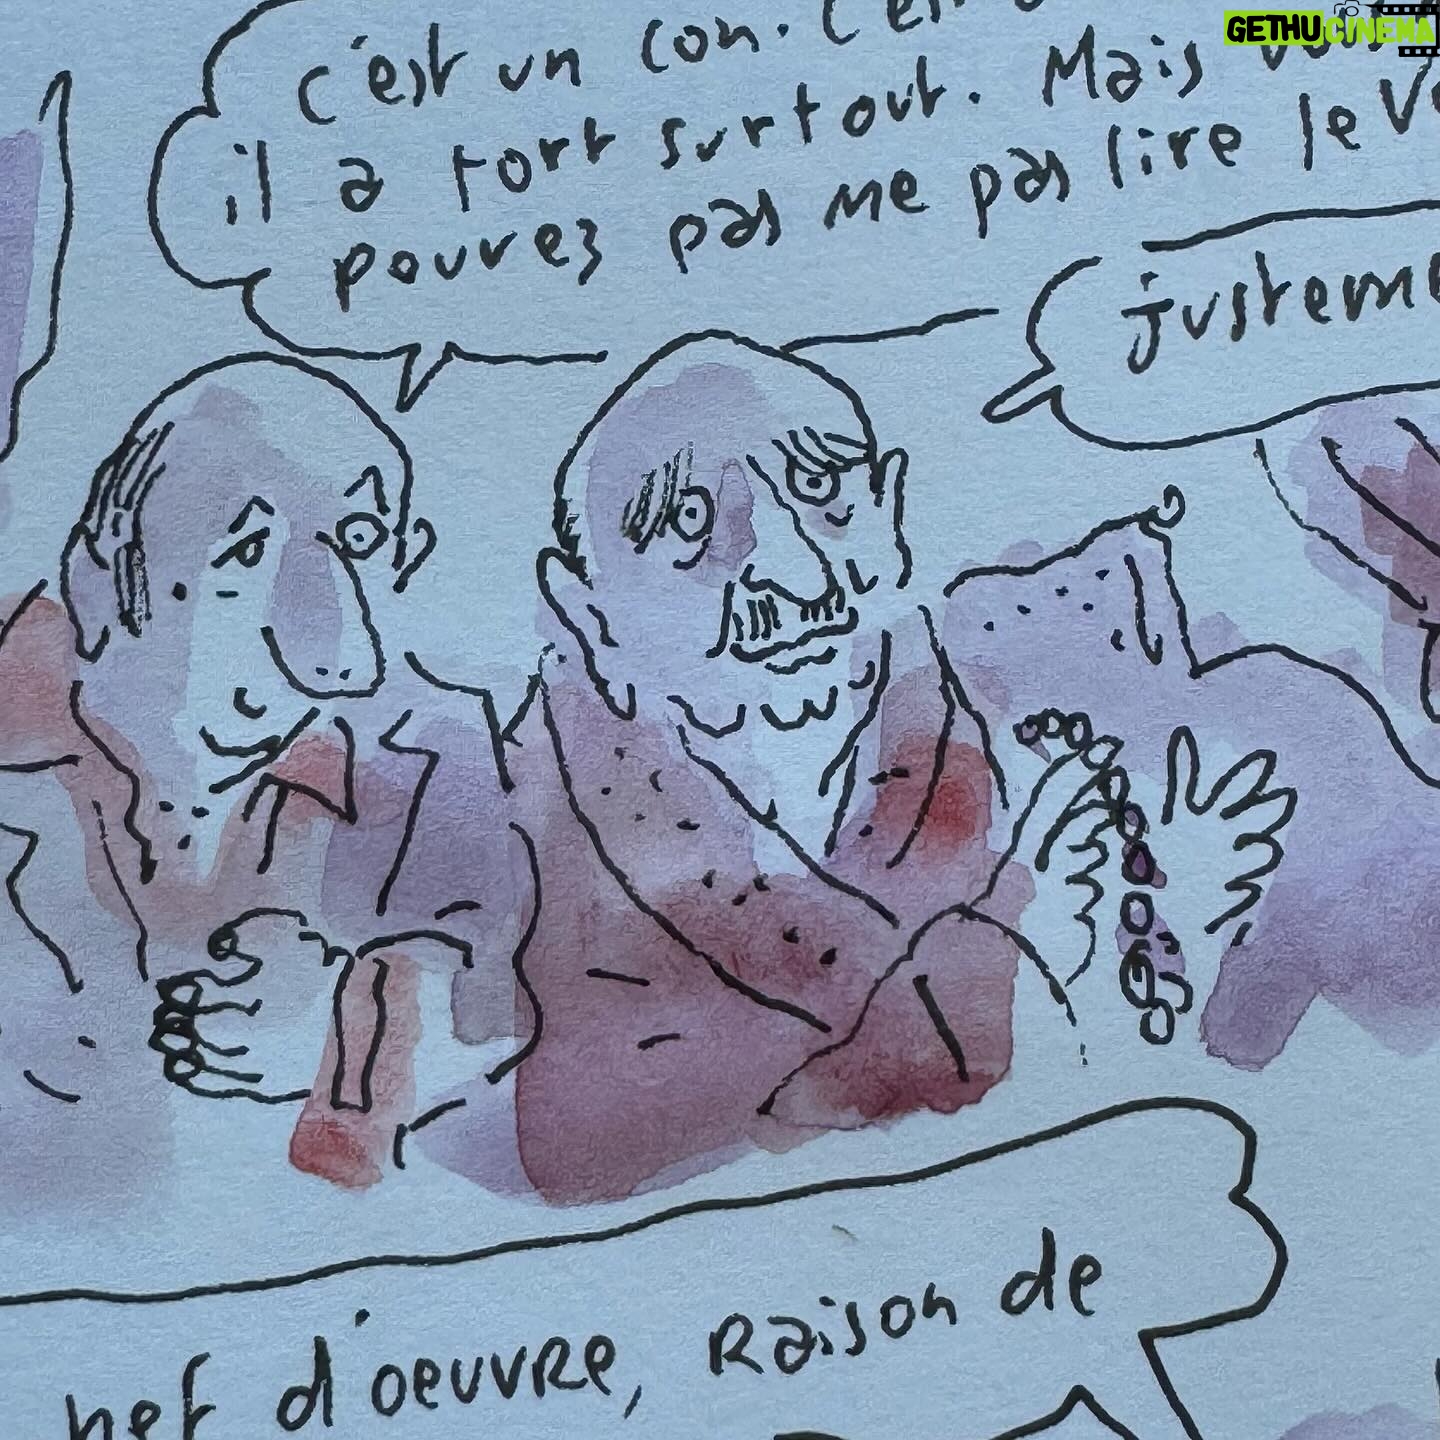 GETHUCINEMA
c'est un con.
il a tort surtout. Mais vous
pouvez pas me pas lire le
justeme
d'oeuvre, Raison de